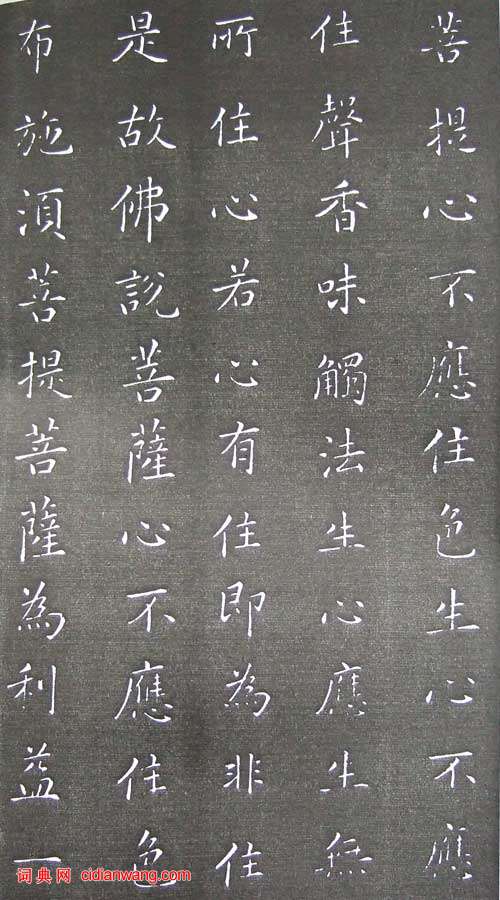 菩提心不應住色生心不應
住聲香味觸法生心應生無
所住心若心有住即為非住
是故佛說菩薩心不應住色
布施須菩提菩薩為利益一
词典网 cidianwang.com